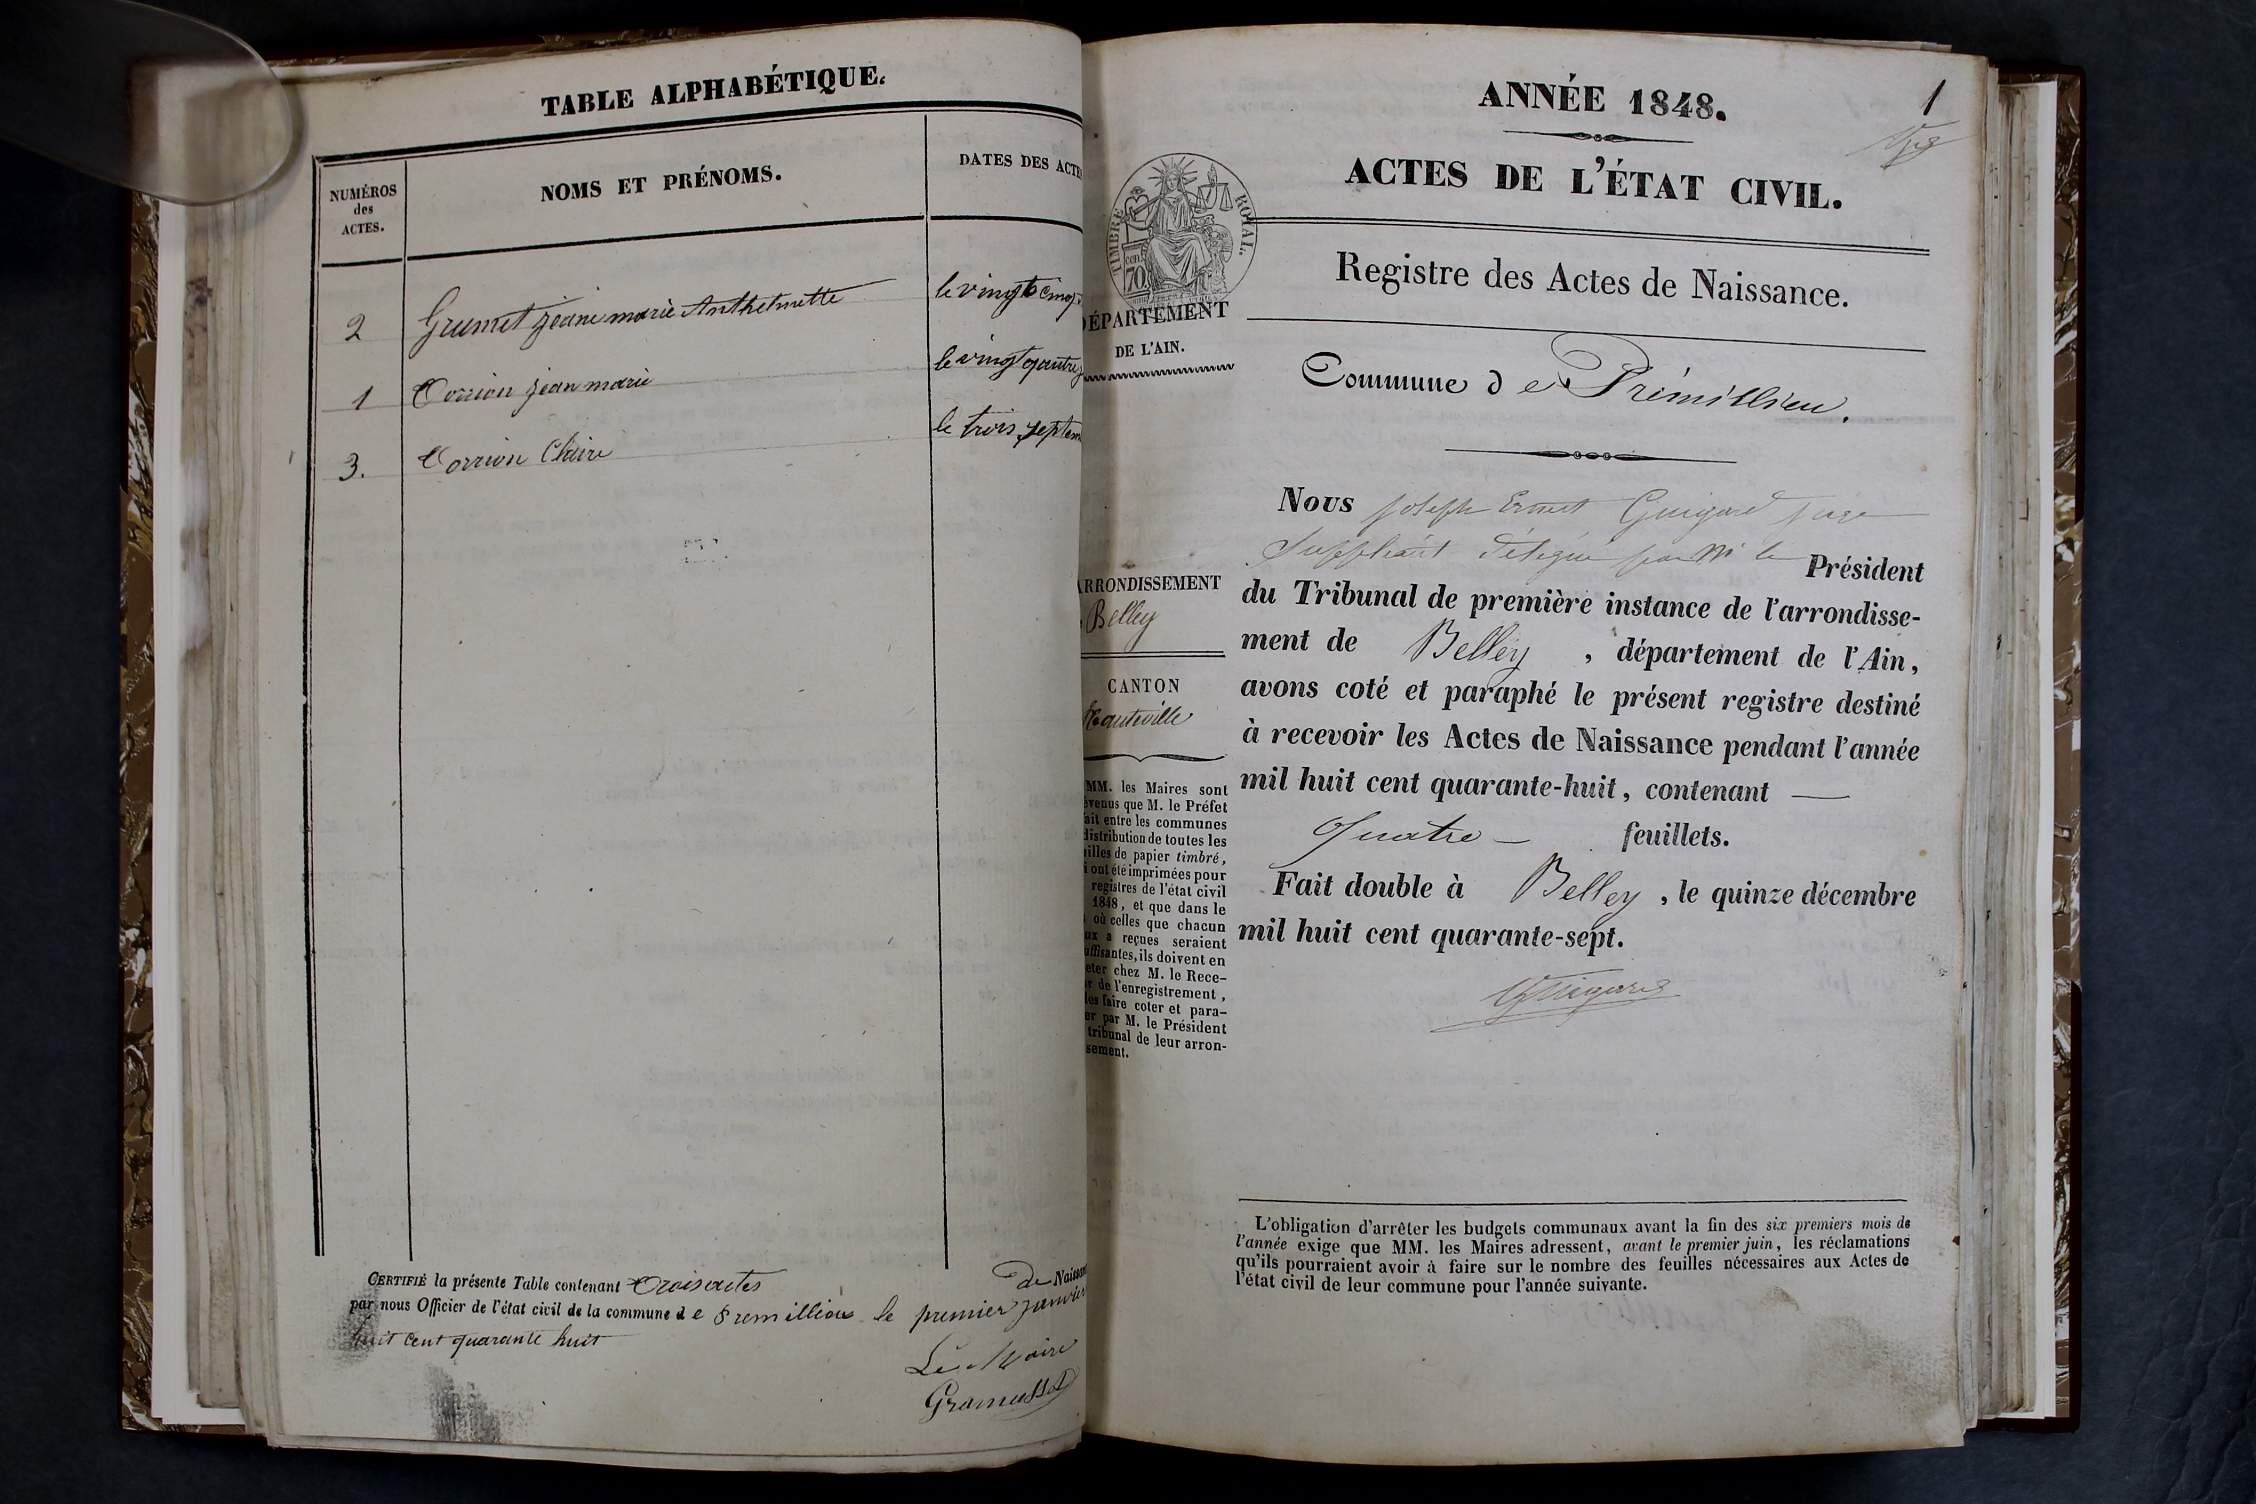 TABLE ALPHABÉTIQUE.
NUMÉROS
des
ACTES.
NOMS ET PRÉNOMS.
DATES DES ACTE
2 Grumet jeane marie Anthelmette le vingt cinq
1 Corrion jean marie le vingt quatre
3. Corrion Claire le trois septem
CERTIFIÉ la présente Table contenant trois actes de Naissan
par nous Officier de l'état civil de la commune de Premillieu le premier janvier
huit cent quarante huit
Le Maire
Gramusset
1
ANNÉE 1848.
ACTES DE L'ÉTAT CIVIL.
TIMBRE ROYAL.
cen 70
DÉPARTEMENT
DE L'AIN.
Registre des Actes de Naissance.
Commune de Prémillieu.
ARRONDISSEMENT
Belley
CANTON
Hauteville
MM. les Maires sont
évenus que M. le Préfet
ait entre les communes
distribution de toutes les
illes de papier timbré,
i ont été imprimées pour
registres de l'état civil
1848, et que dans le
où celles que chacun
ux a reçues seraient
uffisantes, ils doivent en
eter chez M. le Rece-
r de l'enregistrement,
les faire coter et para-
er par M. le Président
tribunal de leur arron-
sement.
Nous Joseph Ernest Guigard juge
suppléant délégué par Mr le Président
du Tribunal de première instance de l'arrondisse-
ment de Belley, département de l'Ain,
avons coté et paraphé le présent registre destiné
à recevoir les Actes de Naissance pendant l'année
mil huit cent quarante-huit, contenant —
Quatre — feuillets.
Fait double à Belley, le quinze décembre
mil huit cent quarante-sept.
Guigard
L'obligation d'arrêter les budgets communaux avant la fin des six premiers mois de
l'année exige que MM. les Maires adressent, avant le premier juin, les réclamations
qu'ils pourraient avoir à faire sur le nombre des feuilles nécessaires aux Actes de
l'état civil de leur commune pour l'année suivante.